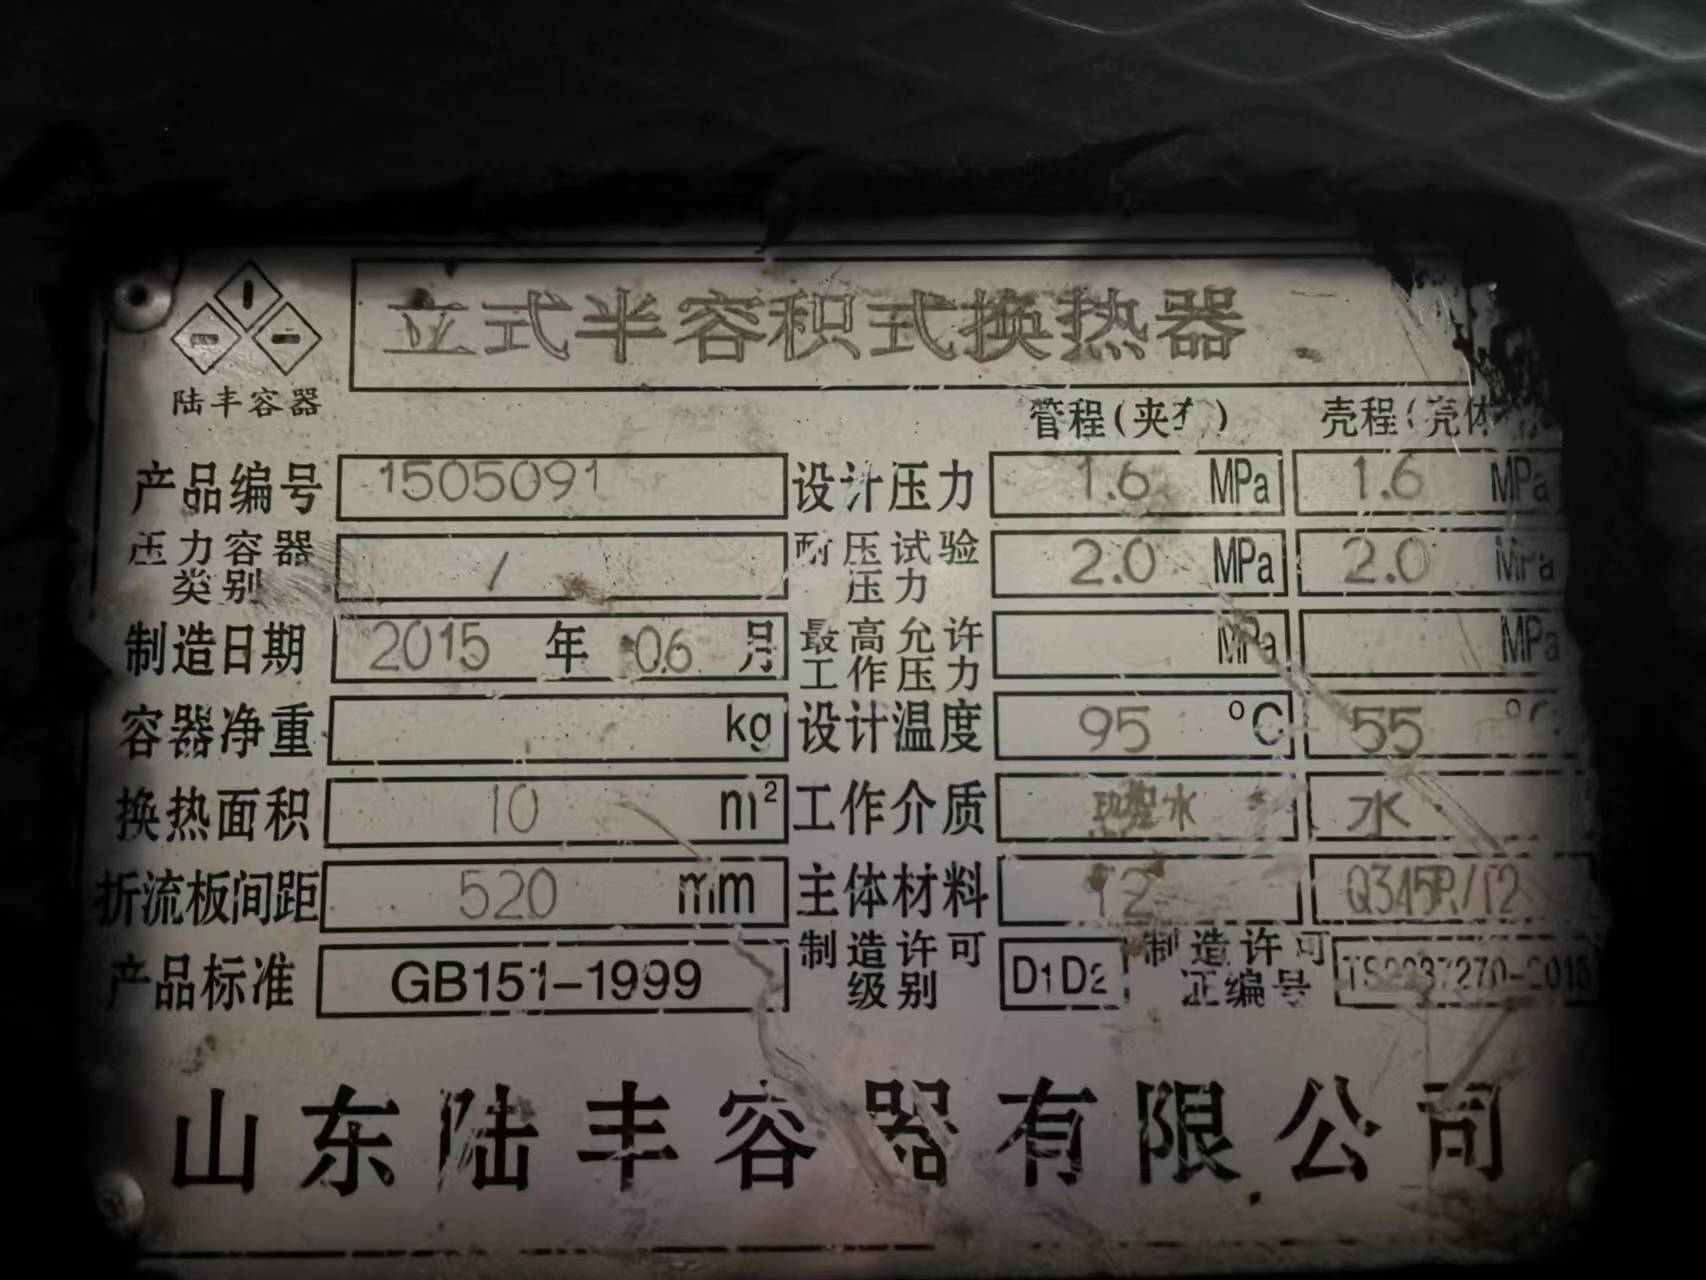 立式半容积式换热器
陆丰容器
管程(夹套) 壳程(壳体
产品编号 1505091 设计压力 1.6 MPa 1.6 MPa
压力容器类别 / 耐压试验压力 2.0 MPa 2.0 MPa
制造日期 2015 年 06 月 最高允许工作压力 MPa MPa
容器净重 kg 设计温度 95 °C 55 °C
换热面积 10 m² 工作介质 水 水
折流板间距 520 mm 主体材料 T2 Q345R/T2
产品标准 GB151-1999 制造许可级别 D1D2 制造许可证编号 TS2237270-2015
山东陆丰容器有限公司